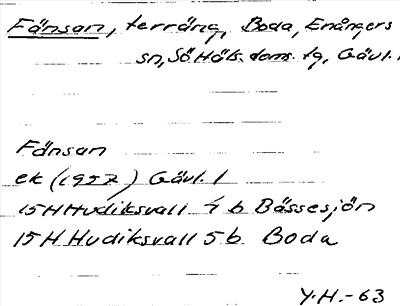 Fänsan, terräng, Boda, Enångers
sn, Sö Häls. doms. tg, Gävl. l
Fänsan
ek (1957) Gävl. l
15H Hudiksvall 4 b Bässesjön
15H Hudiksvall 5 b Boda
Y.H.-63